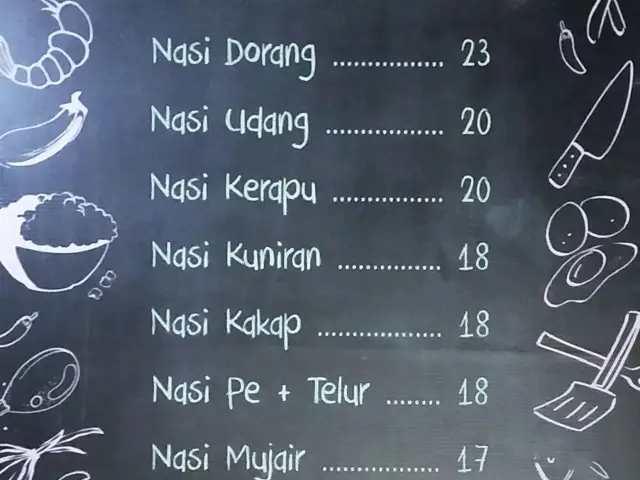 Nasi Dorang ................ 23
Nasi Udang ................. 20
Nasi Kerapu ................ 20
Nasi Kuniran ............... 18
Nasi Kakap .................. 18
Nasi Pe + Telur ........ 18
Nasi Mujair ................. 17